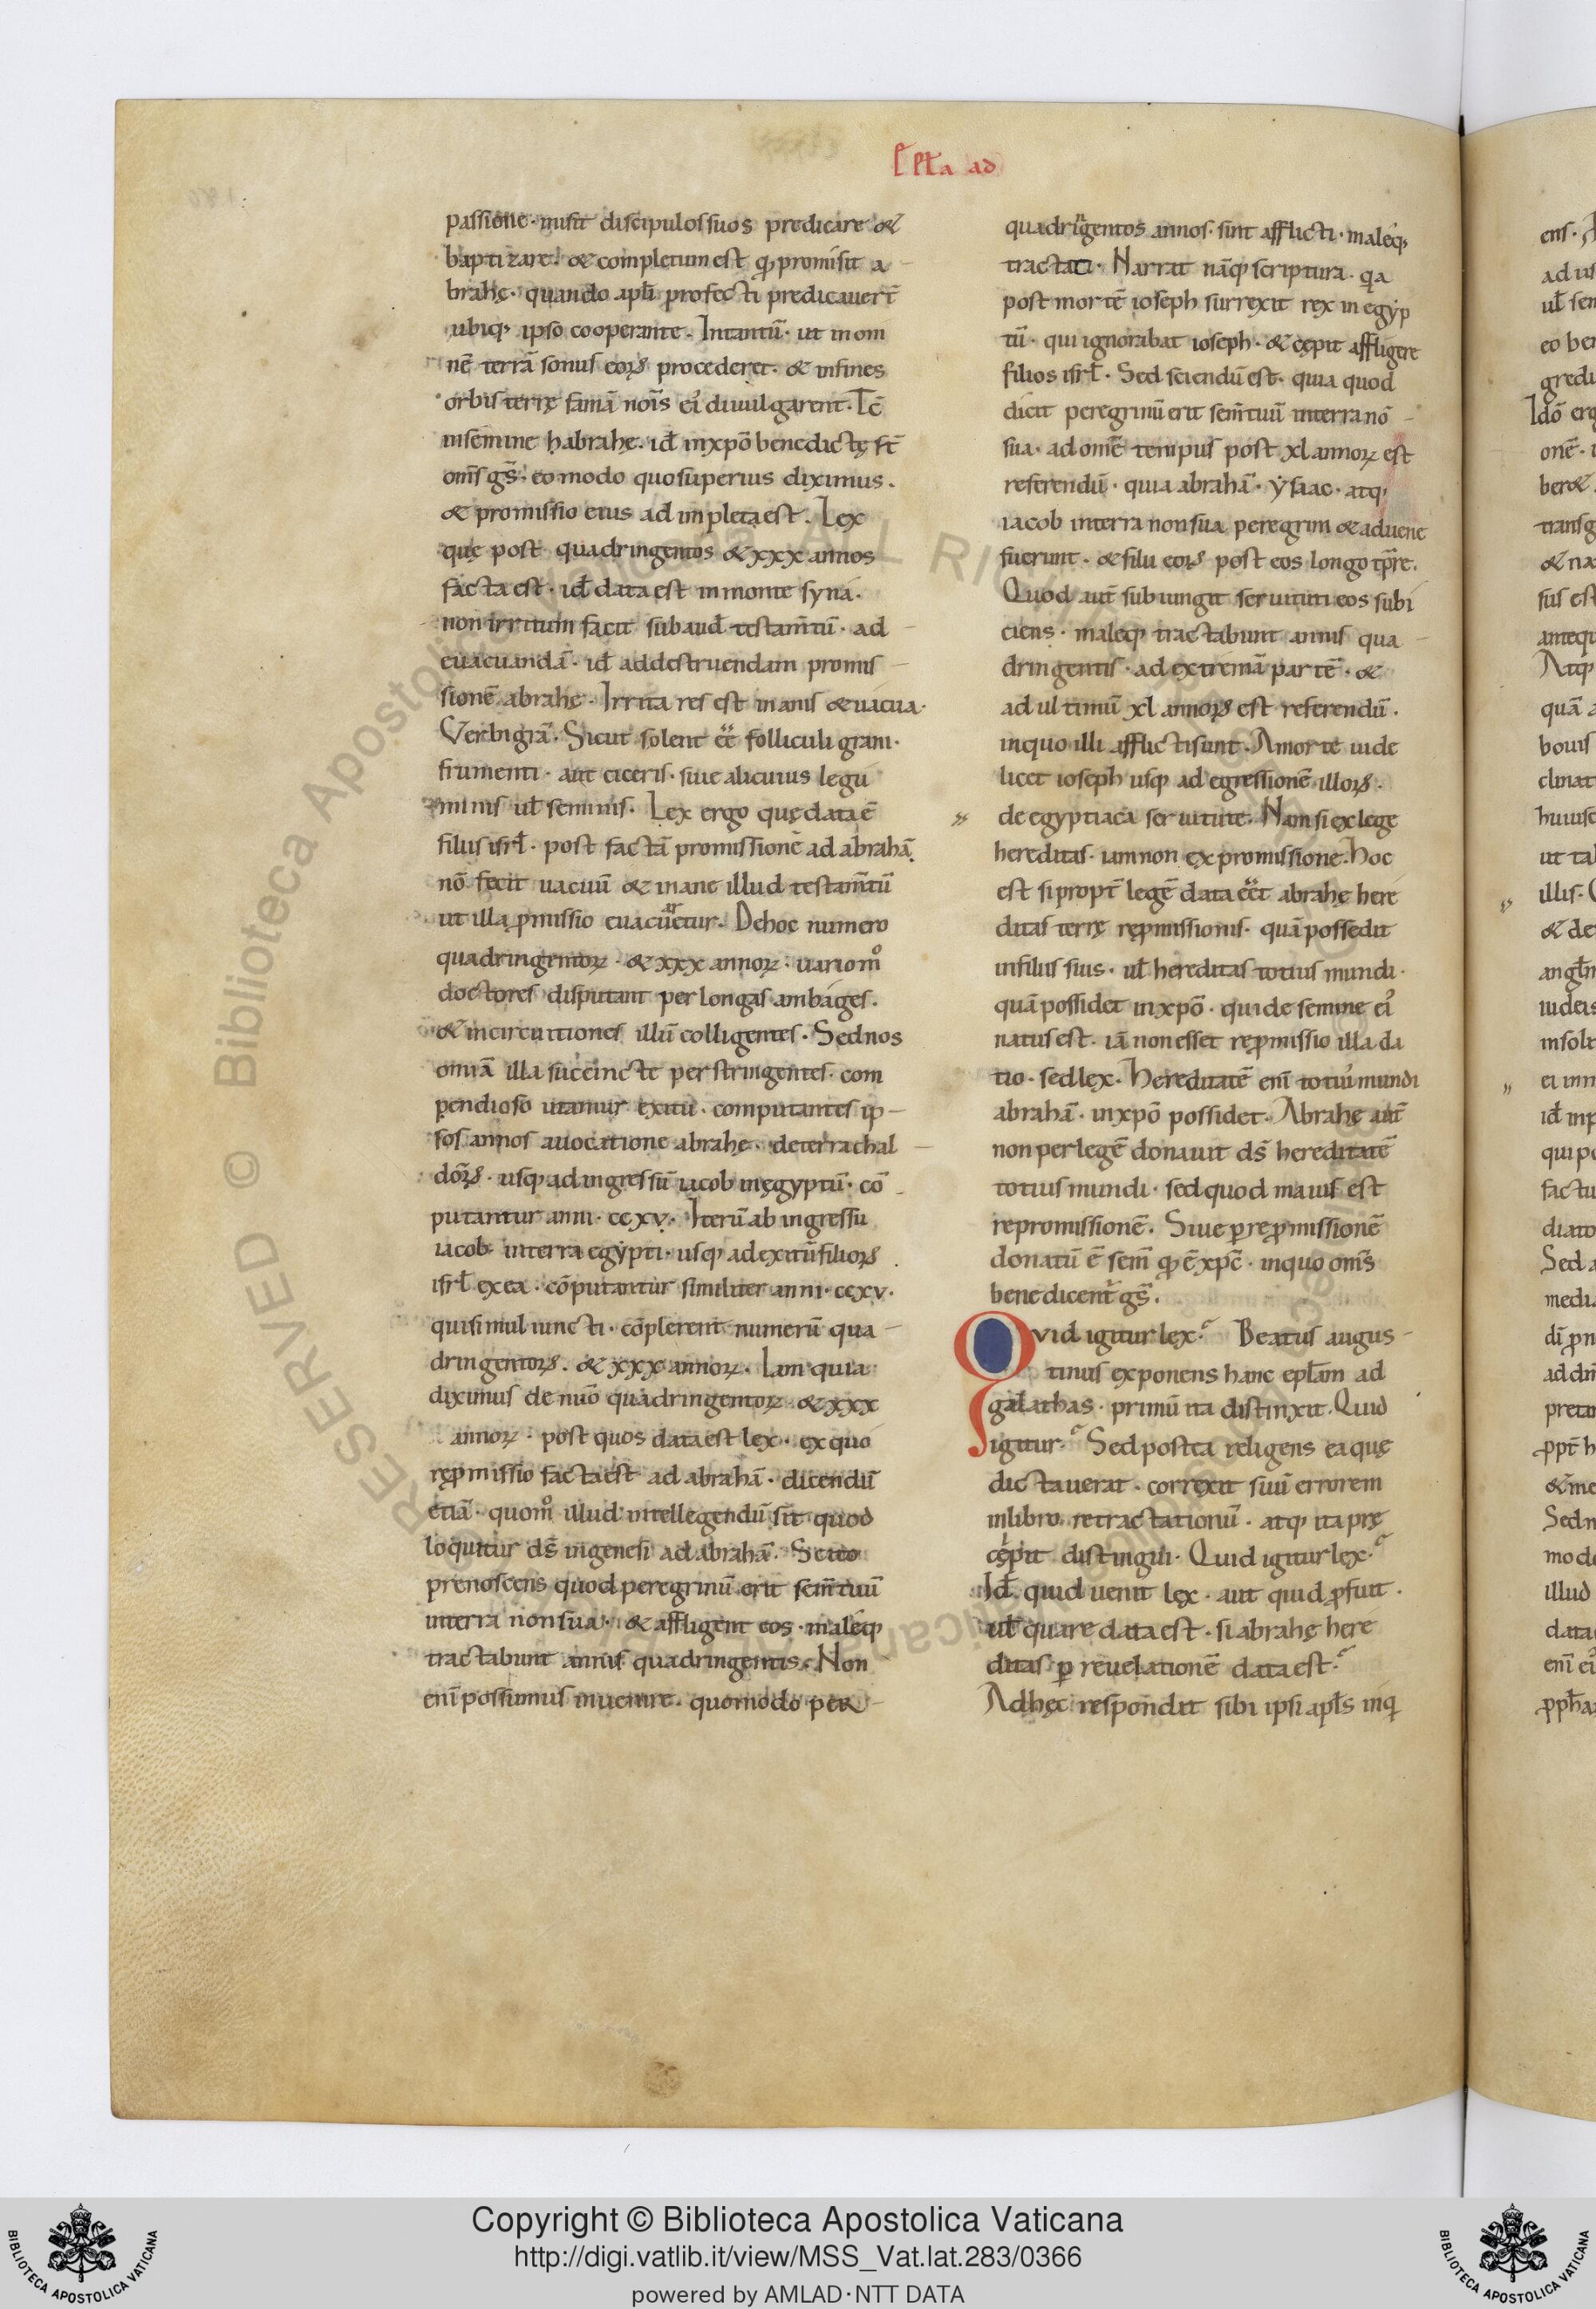 Ep̄la ad
passione · misit discipulos suos predicare &
baptizare · & completum est qđ promisit a
brahę · quando apłi profecti predicauert̄
ubiq; ipso cooperante · Intantū · ut in om
nē terrā sonus eoꝝ procederet · & in fines
orbis terrę famā nōis ei' diuulgarent · Itē
in semine habrahę · id̄ in xp̄o benedictę st̄
om̄s gs̄ · eo modo quo superius diximus ·
& promissio eius adimpleta est · Lex
quę post quadringentos & xxx annos
facta est · id̄ data est in monte syna ·
non irritum facit subaud̄ testam̄tū · ad
euacuandā · id̄ ad destruendam promis
sionē abrahę · Irrita res est inanis & uacua ·
Verbi grā · Sicut solent eē folliculi grani ·
frumenti · aut ciceris · siue alicuius legu
minis ul̄ seminis · Lex ergo quę data ē
filiis isrł · post factā promissionē ad abrahā
nō fecit uacuū & inane illud testam̄tū
ut illa ꝓmissio euacuetur · De hoc numero
quadringentoꝝ · & xxx annoꝝ · uario mͦ
doctores disputant per longas ambages ·
& in circuitiones illū colligentes · Sed nos
omīa illa succincte perstringentes · com
pendioso utamur exitu · computantes ip
sos annos a uocatione abrahę · de terra chal
dōꝝ · usq; ad ingressū iacob in ęgyptū · cō
putantur anni · ccxv · Iterū ab ingressu
iacob in terra egypti · usq; ad exitū filioꝝ
isrł ex ea · cōputantur similiter anni · ccxv ·
qui simul iuncti · cōplerent numerū qua
dringentoꝝ · & xxx annoꝝ · Iam quia
diximus de nūo quadringentoꝝ · & xxx
annoꝝ · post quos data est lex · ex quo
reꝓmissio facta est ad abrahā · dicendū
etiā · quomͦ illud intellegendū sit quod
loquitur ds̄ in genesi ad abrahā · Scito
prenoscens quod peregrinū erit sem̄ tuū
in terra non sua · & affligent eos · maleq;
tractabunt annis quadringentis · Non
enī possumus inuenire · quomodo per
quadringentos annos · sint afflicti · maleq;
tractati · Narrat nāq; scriptura · qa
post mortē ioseph surrexit rex in egyp
tū · qui ignorabat ioseph · & cępit affligere
filios isrł · Sed sciendū est · quia quod
dicit peregrinū erit sem̄ tuū in terra nō
sua · ad om̄e tempus post xl annoꝝ est
referendū · quia abrahā · ysaac · atq;
iacob in terra non sua peregrini & aduene
fuerunt · & filii eoꝝ post eos longo tp̄re ·
Quod aut̄ subiungit seruituti eos subi
ciens · maleq; tractabunt annis qua
dringentis · ad extremā partē · &
ad ultimū xl annoꝝ est referendū ·
in quo illi afflicti sunt · A morte uide
licet ioseph usq; ad egressionē illoꝝ ·
de egyptiaca seruitute · Nam si ex lege
hereditas · iam non ex promissione · Hoc
est si propt̄ legē data eēt abrahę here
ditas terrę reꝓmissionis · quā possedit
in filiis suis · ul̄ hereditas totius mundi ·
quā possidet in xp̄o · qui de semine ei'
natus est · iā non esset reꝓmissio illa da
tio · sed lex · Hereditatē enī toti' mundi
abrahā · in xp̄o possidet · Abrahę aut̄
non per legē donauit ds̄ hereditatē
totius mundi · sed quod maius est
repromissionē · Siue ꝑ reꝓmissionē
donatū ē sem̄ qđ ē xp̄c · in quo om̄s
benedicent̄ gs̄ ·
Qvid igitur lex · Beatus augus
tinus exponens hanc epłam ad
galathas · primū ita distinxit · Quid
igitur · Sed postea religens ea quę
dictauerat · correxit suū errorem
in libro retractationū · atq; ita prę
cępit distingui · Quid igitur lex ·
Id̄ quid uenit lex · aut quid ꝓfuit ·
ul̄ quare data est · si abrahę here
ditas ꝑ reuelationē data est ·
Ad hęc respondit sibi ipsi apłs inq
Copyright © Biblioteca Apostolica Vaticana
http://digi.vatlib.it/view/MSS_Vat.lat.283/0366
powered by AMLAD·NTT DATA
BIBLIOTECA APOSTOLICA VATICANA
BIBLIOTECA APOSTOLICA VATICANA